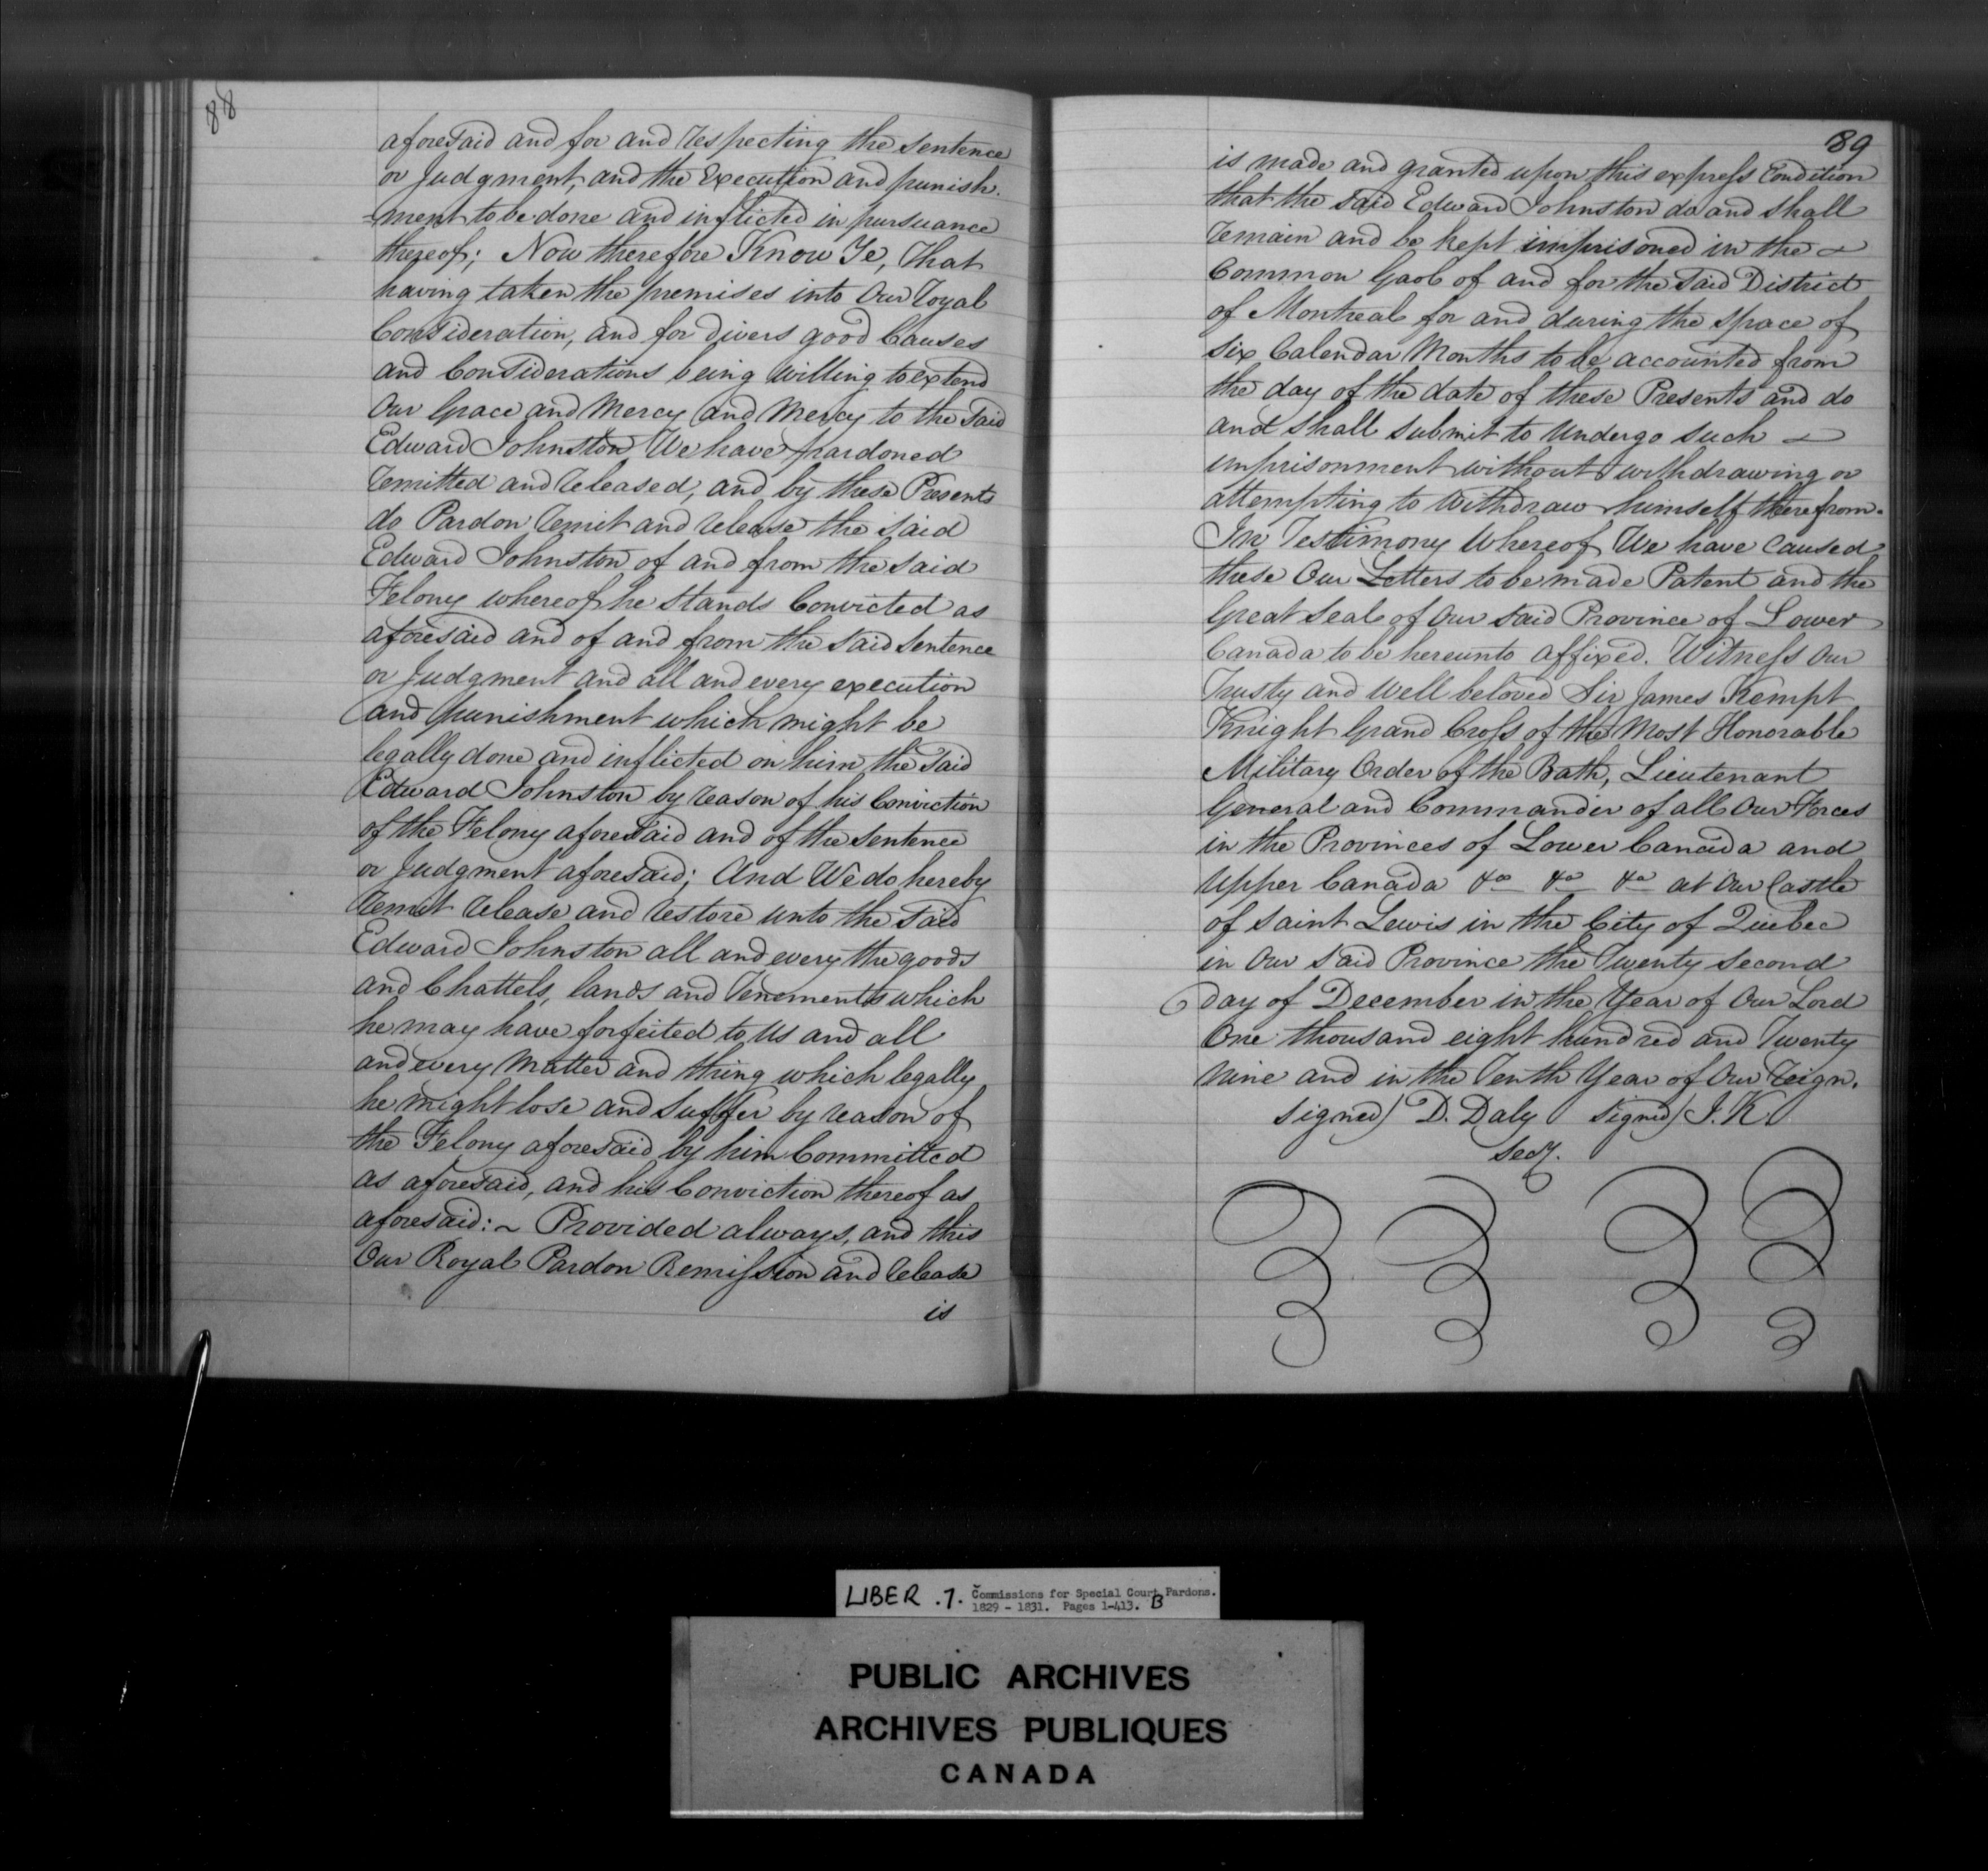 88
aforesaid and for and respecting the sentence
or Judgment, and the Execution and punish-
=ment to be done and inflicted in pursuance
thereof; Now therefore Know Ye, That
having taken the premises into Our Royal
Consideration, and for divers good Causes
and Considerations being Willing to extend
Our Grace and Mercy and Mercy to the said
Edward Johnston We have pardoned
remitted and released, and by these Presents
do Pardon remit and release the said
Edward Johnston of and from the said
Felony whereof he Stands Convicted as
aforesaid and of and from the said Sentence
or Judgment and all and every execution
and punishment which might be
legally done and inflicted on him the said
Edward Johnston by reason of his Conviction
of the Felony aforesaid and of the Sentence
or Judgment aforesaid; And We do hereby
remit release and restore unto the said
Edward Johnston all and every the goods
and Chattels, lands and Tenements which
he may have forfeited to Us and all
and every Matter and thing which legally
he might lose and suffer by reason of
the Felony aforesaid by him Committed
as aforesaid, and his Conviction thereof as
aforesaid:~ Provided always, and this
Our Royal Pardon Remission and release
is
89
is made and granted upon this express Condition
that the said Edward Johnston do and shall
remain and be kept imprisoned in the
Common Gaol of and for the said District
of Montreal for and during the space of
six Calendar Months to be accounted from
the day of the date of these Presents and do
and shall submit to Undergo such
imprisonment without withdrawing or
attempting to Withdraw himself therefrom.
In Testimony Whereof We have Caused
these Our Letters to be made Patent and the
Great Seal of Our said Province of Lower
Canada to be hereunto affixed. Witness Our
Trusty and Well beloved Sir James Kempt
Knight Grand Cross of the Most Honorable
Military Order of the Bath, Lieutenant
General and Commander of all Our Forces
in the Provinces of Lower Canada and
Upper Canada &c &c &c at Our Castle
of Saint Lewis in the City of Quebec
in Our said Province the Twenty Second
day of December in the Year of Our Lord
One thousand eight hundred and Twenty
Nine and in the Tenth Year of Our Reign.
signed) D. Daly signed) J. K.
Secy.
LIBER .7. Commissions for Special Court Pardons.
1829 - 1831. Pages 1-413. B
PUBLIC ARCHIVES
ARCHIVES PUBLIQUES
CANADA